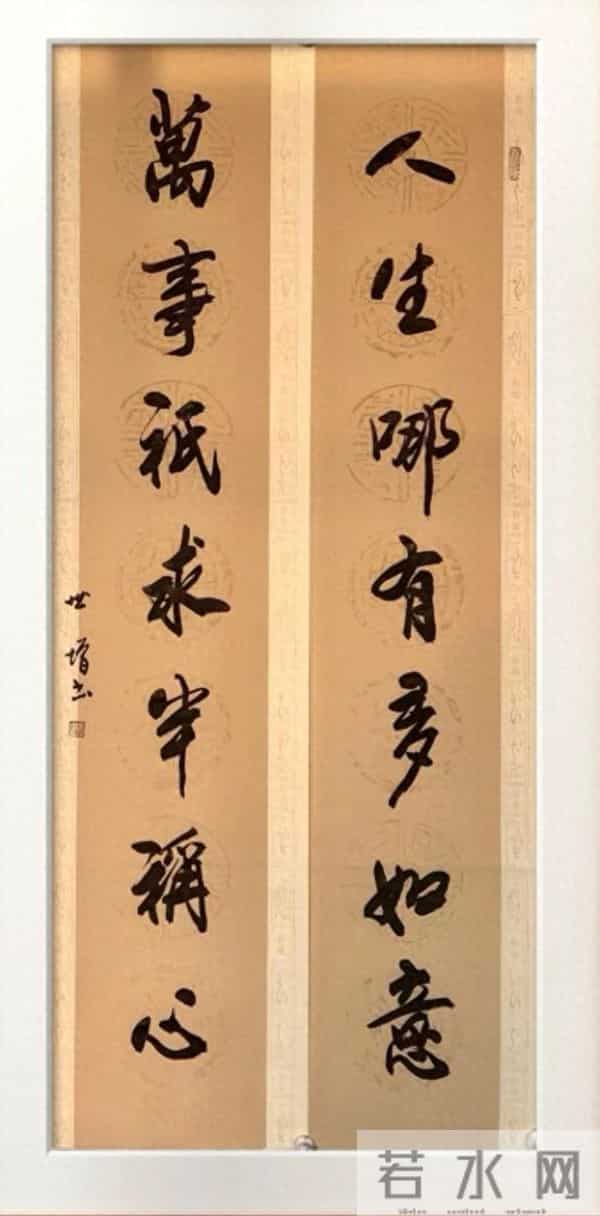 人生哪有多如意
萬事祇求半稱心
世增书
若水网